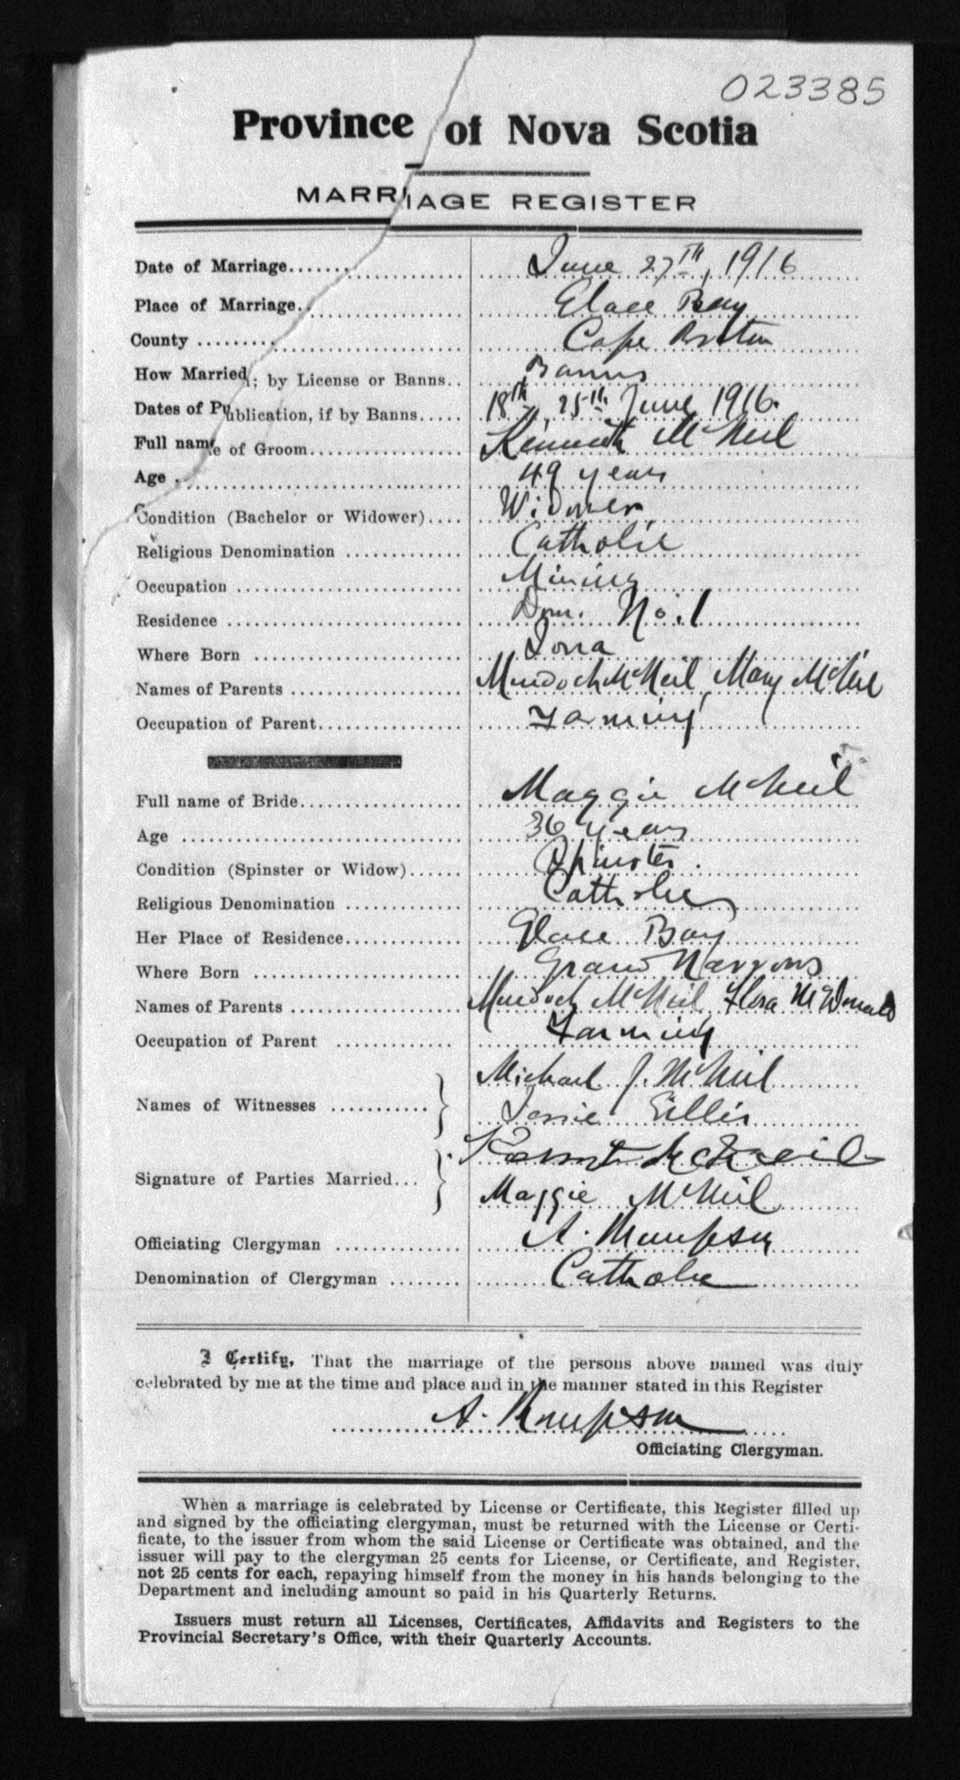 023385
Province of Nova Scotia
MARRIAGE REGISTER
Date of Marriage June 27th, 1916
Place of Marriage Glace Bay
County Cape Breton
How Married; by License or Banns Banns
Dates of Publication, if by Banns 18th, 25th June 1916.
Full name of Groom Kenneth McNeil
Age 49 years
Condition (Bachelor or Widower) Widower
Religious Denomination Catholic
Occupation Mining
Residence Dom. No. 1
Where Born Iona
Names of Parents Murdoch McNeil, Mary McNeil
Occupation of Parent Farming
Full name of Bride Maggie McNeil
Age 36 years
Condition (Spinster or Widow) Spinster.
Religious Denomination Catholic
Her Place of Residence Glace Bay
Where Born Grand Narrows
Names of Parents Murdoch McNeil, Flora McDonald
Occupation of Parent Farming
Names of Witnesses Michael J. McNeil
Jessie Gillis
Signature of Parties Married McNeil
Maggie McNeil
Officiating Clergyman A. Thompson
Denomination of Clergyman Catholic
I Certify, That the marriage of the persons above named was duly
celebrated by me at the time and place and in the manner stated in this Register
A. Thompson
Officiating Clergyman.
When a marriage is celebrated by License or Certificate, this Register filled up
and signed by the officiating clergyman, must be returned with the License or Certi-
ficate, to the issuer from whom the said License or Certificate was obtained, and the
issuer will pay to the clergyman 25 cents for License, or Certificate, and Register,
not 25 cents for each, repaying himself from the money in his hands belonging to the
Department and including amount so paid in his Quarterly Returns.
Issuers must return all Licenses, Certificates, Affidavits and Registers to the
Provincial Secretary's Office, with their Quarterly Accounts.